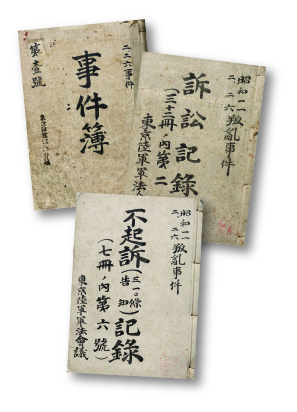 二二六事件
事件簿
第壹號
昭和一一
二、二六叛亂事件
訴訟記録
(三十二冊ノ内第二
東京陸軍軍法
昭和一一
二、二六叛亂事件
不起訴(三一〇條告知)記録
(七冊ノ内第六號)
東京陸軍軍法會議